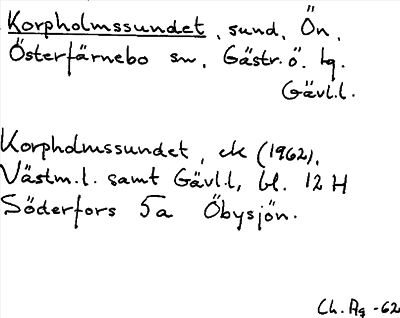 Korpholmssundet, sund, Ön,
Österfärnebo sn, Gästr. ö. tg.
Gävl.l.
Korpholmssundet, ek (1962),
Västm.l. samt Gävl.l, bl. 12 H
Söderfors 5a Öbysjön.
Ch. Ag -62